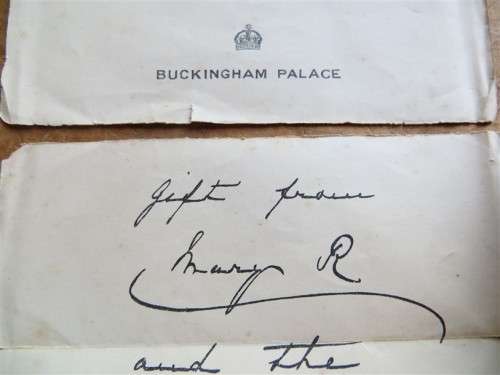 BUCKINGHAM PALACE
gift from
Mary R
and the